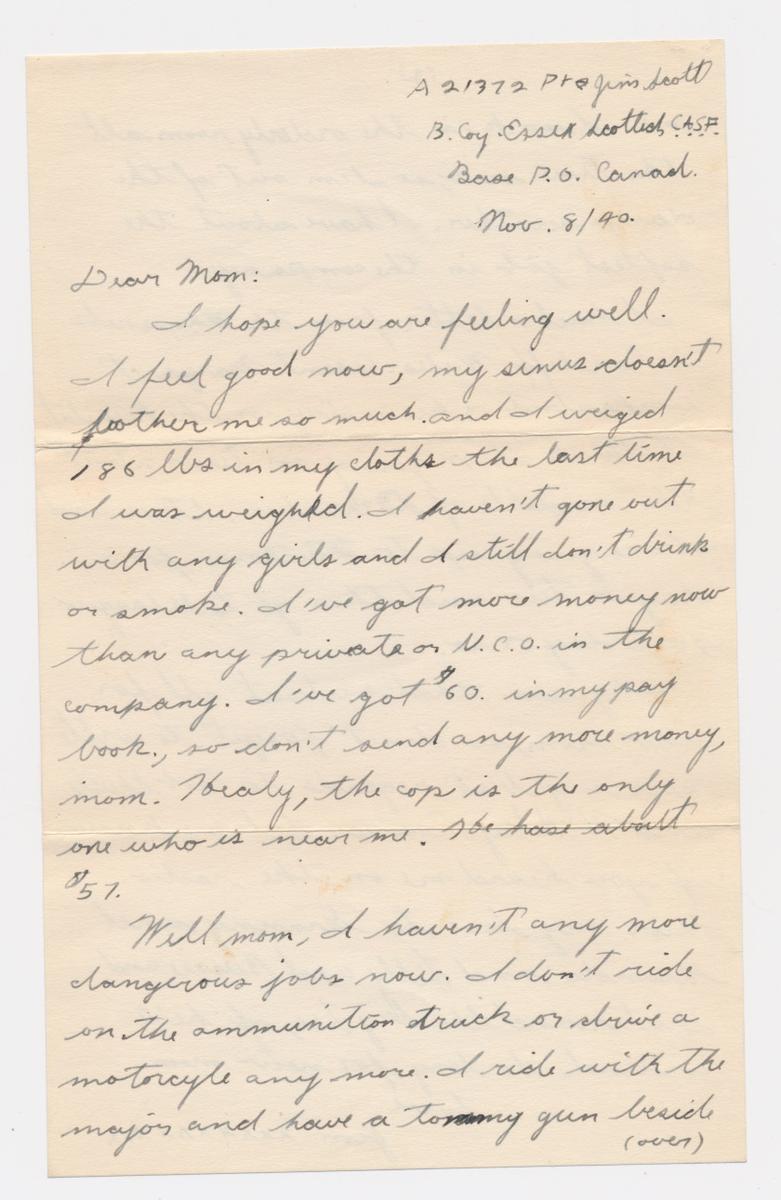 A 21372 Pte Jim Scott
B. Coy. Essex Scottish C.A.S.F.
Base P.O. Canad.
Nov. 8/40.
Dear Mom:
I hope you are feeling well.
I feel good now, my sinus doesn't
bother me so much. and I weiged
186 lbs in my cloths the last time
I was weighed. I haven't gone out
with any girls and I still don't drink
or smoke. I've got more money now
than any private or N.C.O. in the
company. I've got $60. in my pay
book., so don't send any more money,
mom. Healy, the cop is the only
one who is near me. He hase about
$57.
Well mom, I haven't any more
dangerous jobs now. I don't ride
on the ammunition truck or drive a
motorcyle any more. I ride with the
major and have a tommy gun beside
(over)